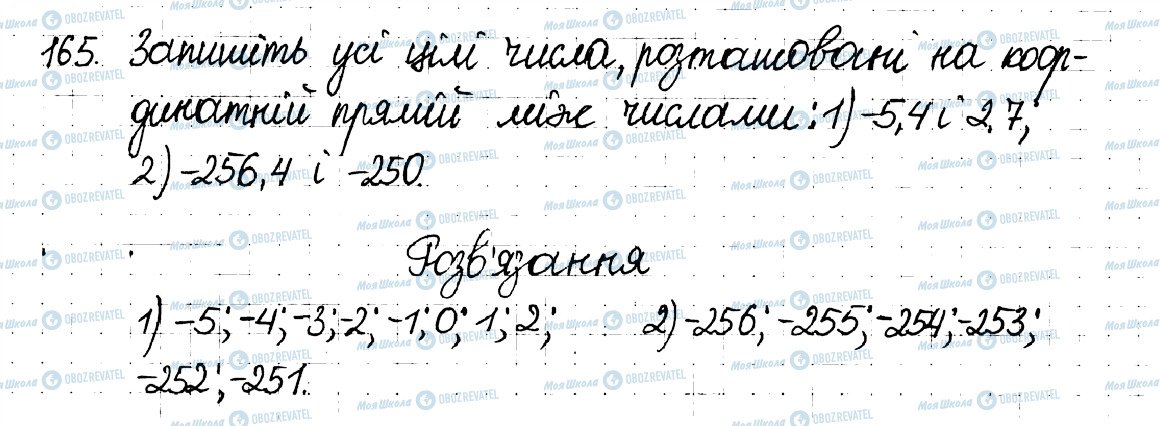 165. Запишіть усі цілі числа, розташовані на коор-
динатній прямій між числами: 1) -5,4 і 2,7;
2) -256,4 і -250.
Розв'язання
1) -5; -4; -3; -2; -1; 0; 1; 2; 2) -256; -255; -254; -253;
-252; -251.